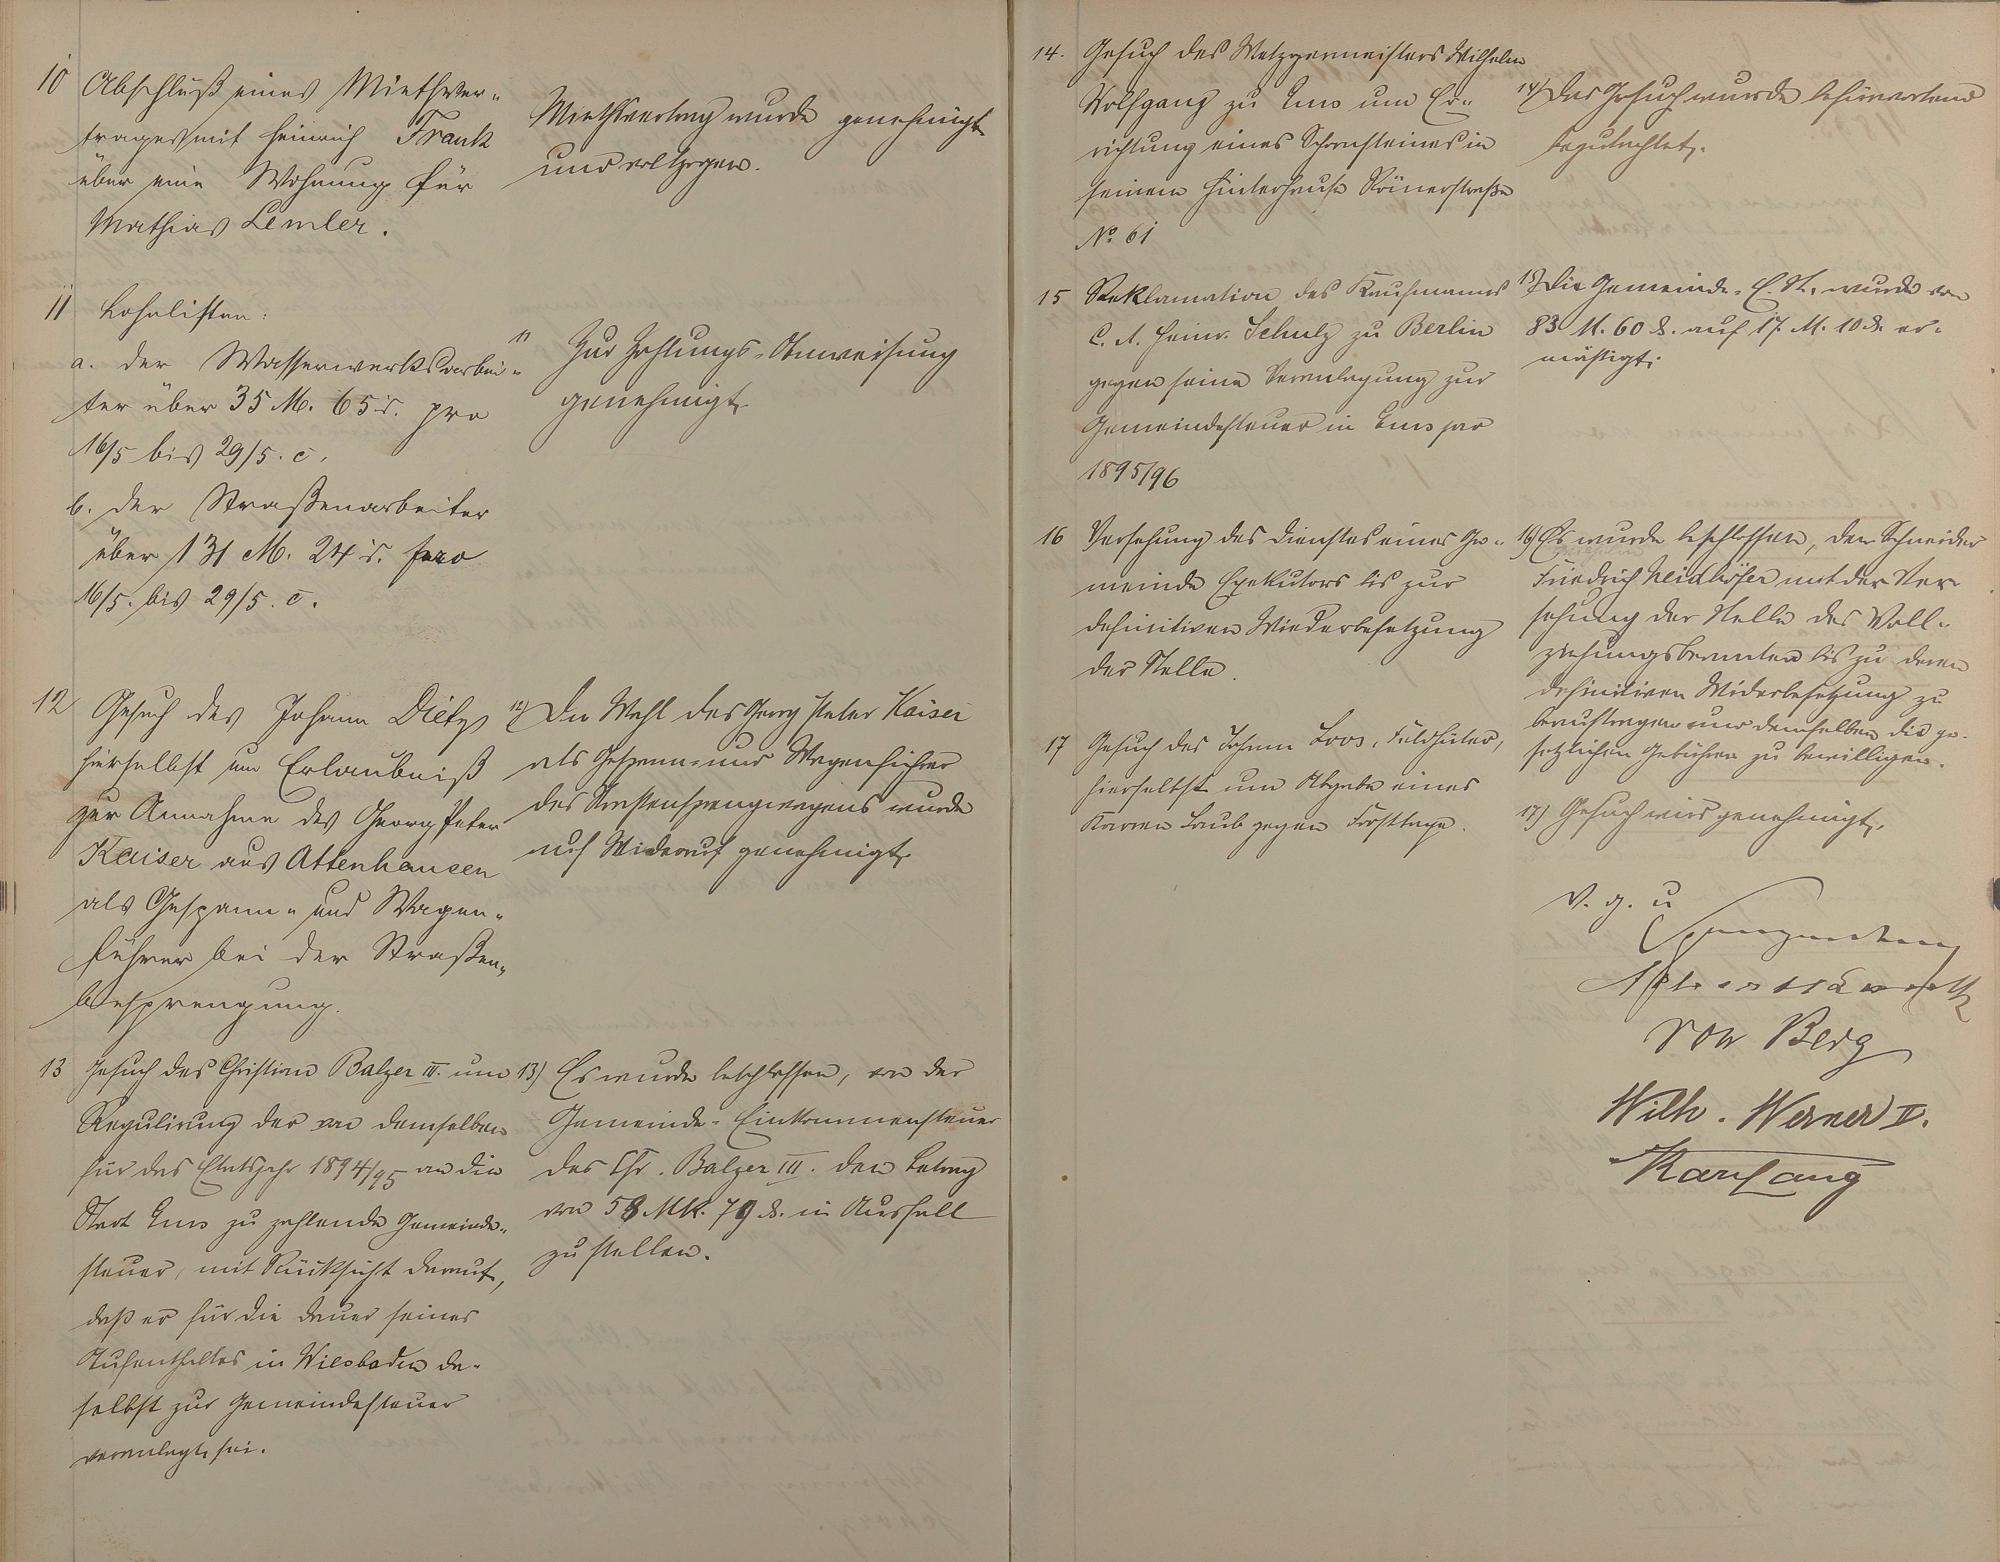 10 Abschluß eines Miethver-
trages mit Heinrich Frank
über eine Wohnung für
Mathias Lemler.
Miethsvertrag wurde genehmigt
und vollzogen.
11 Lohnlisten:
a. der Wasserwerksarbei-
ter über 35 M. 65 ₰. pro
16/5 bis 29/5. c.
b. der Straßenarbeiter
über 131 M. 24 ₰. pro
16/5. bis 29/5. c.
11 Zur Zahlungs-Anweisung
genehmigt.
12 Gesuch des Johann Dietz
hierselbst um Erlaubniß
zur Annahme des Georg Peter
Kaiser aus Attenhausen
als Gespann- und Wagen-
führer bei der Straßen-
besprengung.
12) Die Wahl des Georg Peter Kaiser
als Gespann- und Wagenführer
des Straßensprengwagens wurde
auf Widerruf genehmigt.
13 Gesuch des Christian Balzer III. um
Regulirung der von demselben
für das Etatsjahr 1894/95 an die
Stadt Ems zu zahlende Gemeinde-
steuer, mit Rücksicht darauf,
daß er für die Dauer seines
Aufenthaltes in Wiesbaden da-
selbst zur Gemeindesteuer
veranlagt sei.
13) Es wurde beschlossen, von der
Gemeinde-Einkommensteuer
des Chr. Balzer III. den Betrag
von 58 Mk. 79 ₰. in Ausfall
zu stellen.
14. Gesuch des Metzgermeisters Wilhelm
Wolfgang zu Ems um Er-
richtung eines Schornsteines in
seinem Hinterhause Römerstraße
No 61
14) Das Gesuch wurde befürwortend
begutachtet.
15 Reklamation des Kaufmanns
C. A. Heinr. Schulz zu Berlin
gegen seine Veranlagung zur
Gemeindesteuer in Ems pro
1895/96
15) Die Gemeinde-E. St. wurde von
83 M. 60 ₰. auf 17 M. 10 ₰. er-
mäßigt.
16 Versehung des Dienstes eines Ge-
meinde Exekutors bis zur
definitiven Wiederbesetzung
der Stelle.
16) Es wurde beschlossen, den Schneider
Friedrich Neidhöfer mit der Ver-
sehung der Stelle des Voll-
ziehungsbeamten bis zu deren
definitiven Widerbesetzung zu
beauftragen und demselben die ge-
setzlichen Gebühren zu bewilligen.
17 Gesuch des Johann Loos, Feldhüter,
hierselbst um Abgabe eines
Karren Laub gegen Forsttaxe.
17) Gesuch wird genehmigt.
v. g. u
von Berg
Wilh. Werner II.
Karl Lang